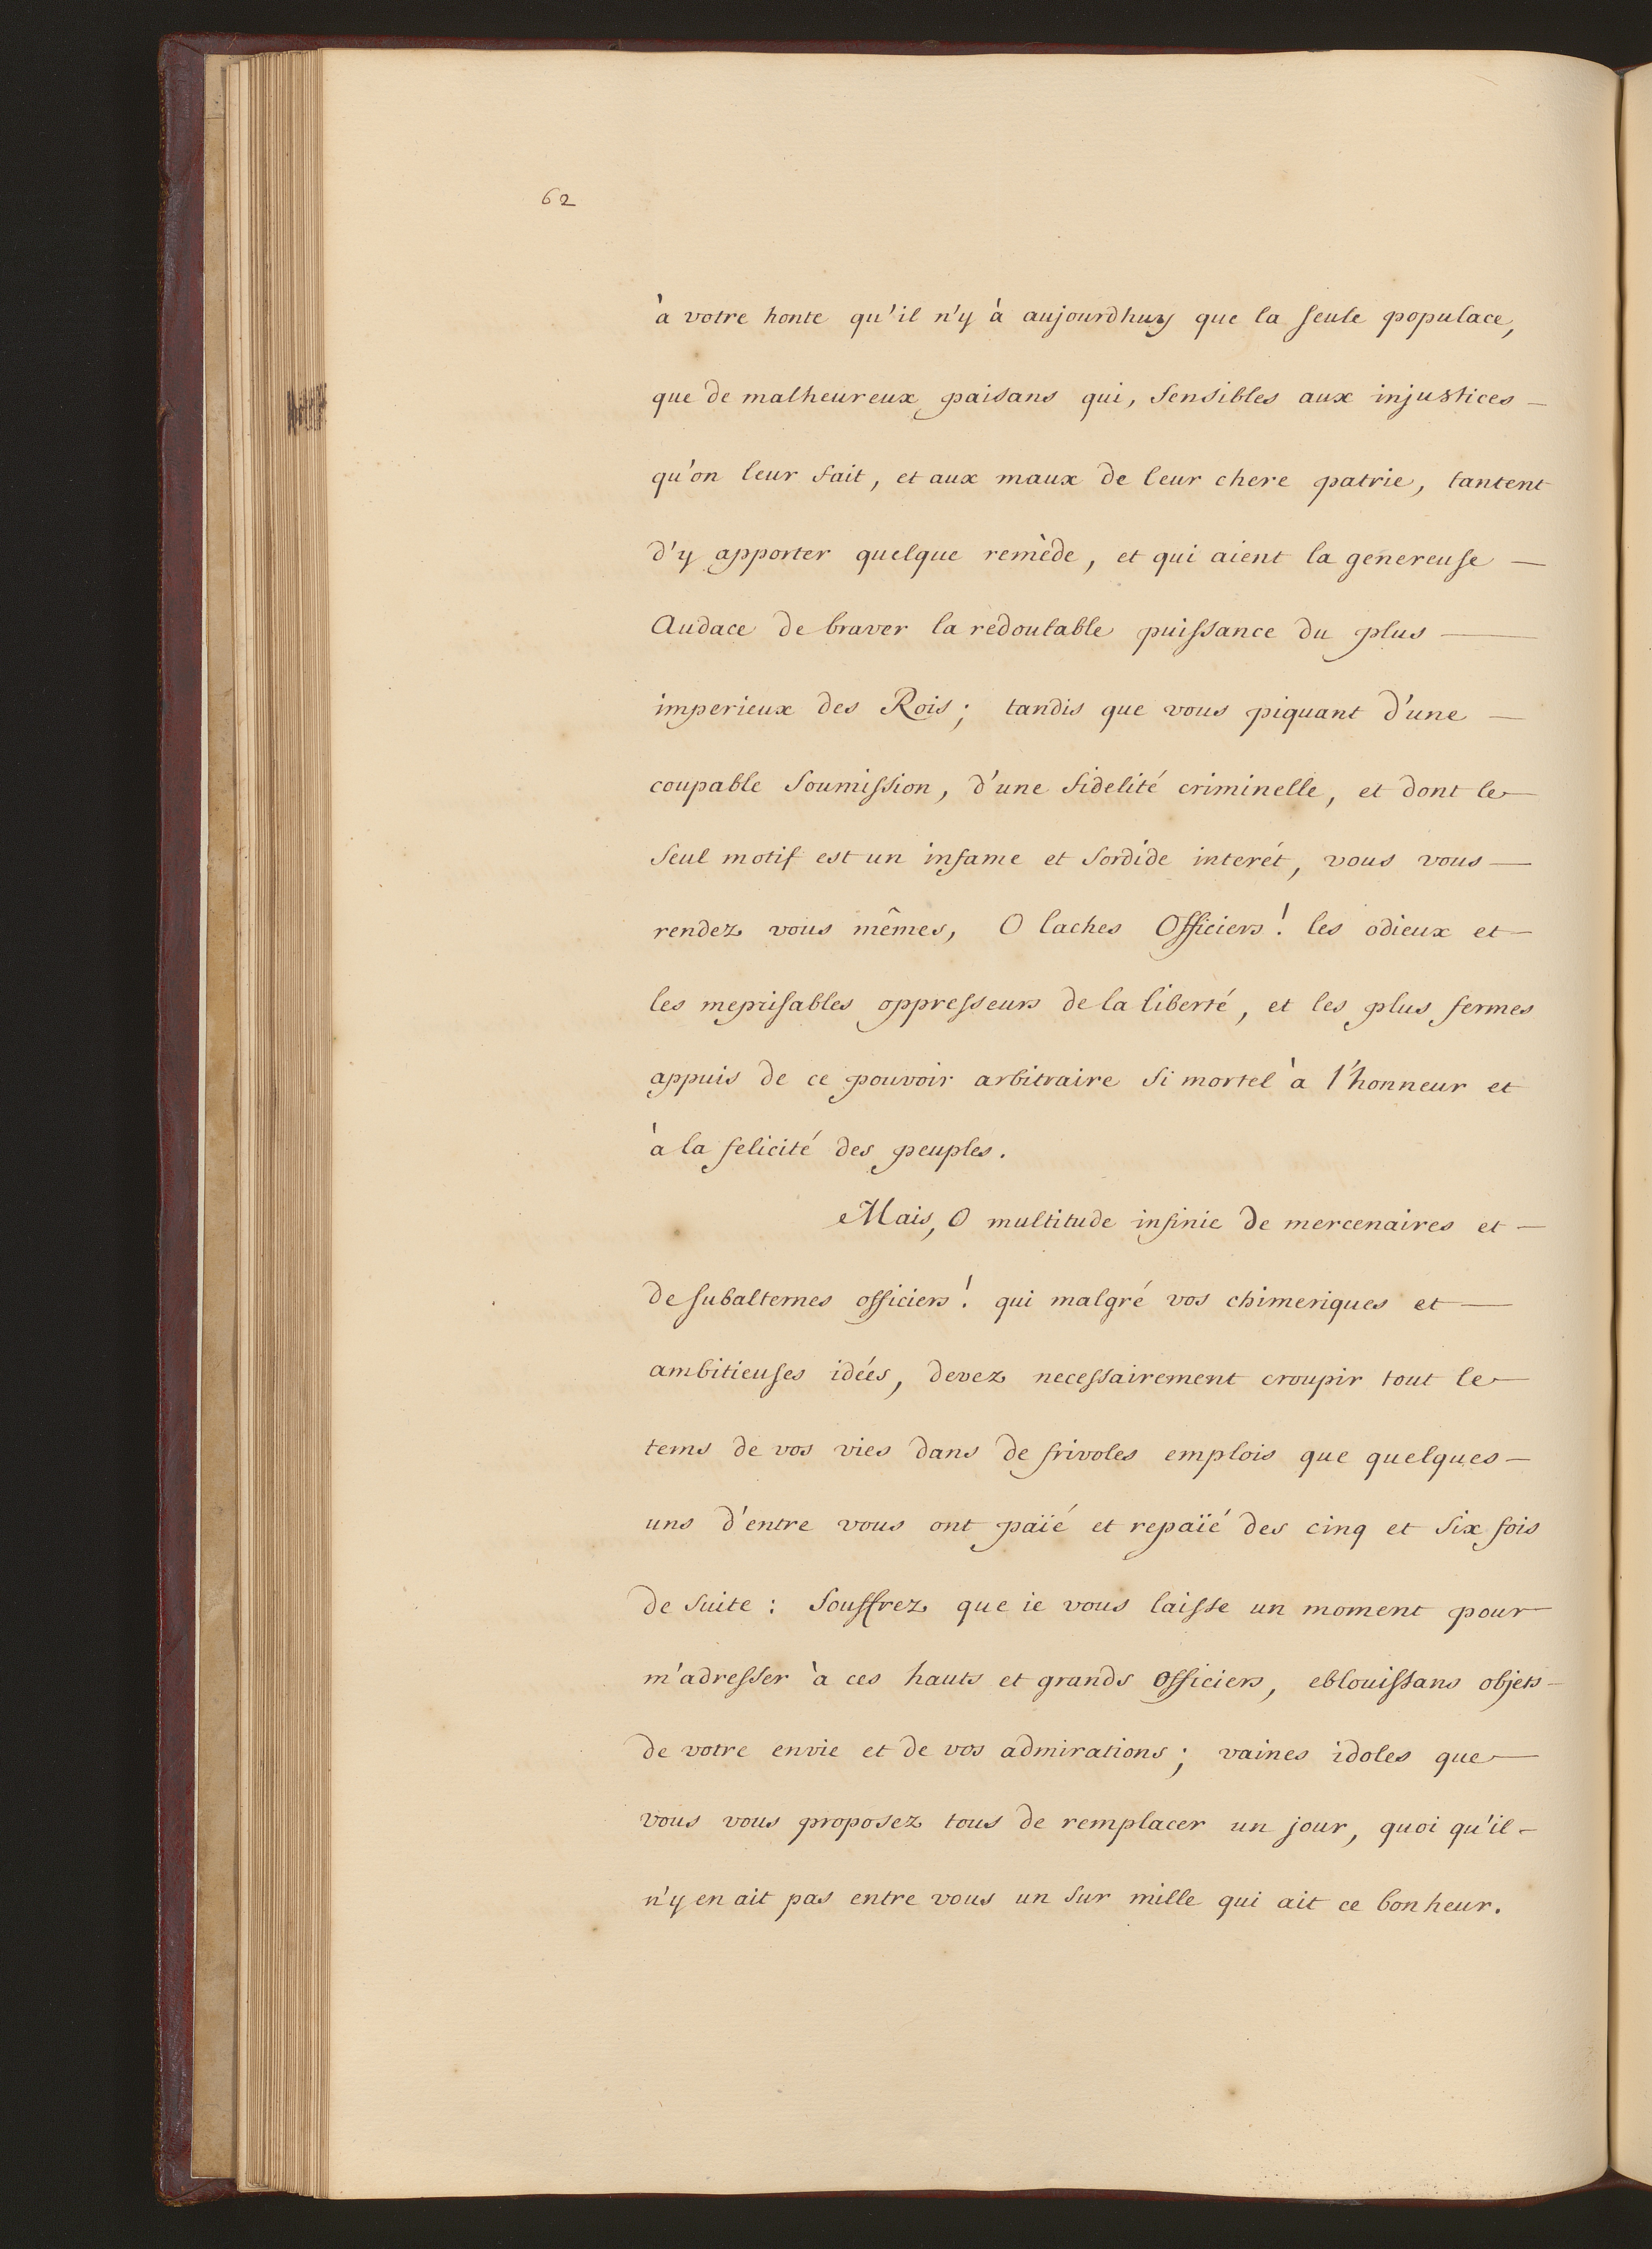 62
à votre honte qu'il n'y à aujourdhuy que la seule populace,
que de malheureux paisans qui, sensibles aux injustices —
qu'on leur fait, et aux maux de leur chere patrie, tantent
d'y apporter quelque remède, et qui aient la genereuse —
Audace de braver la redoutable puissance du plus —
imperieux des Rois; tandis que vous piquant d'une —
coupable soumission, d'une fidelité criminelle, et dont le —
seul motif est un infame et sordide interét, vous vous —
rendez vous mêmes, O laches Officiers! les odieux et —
les meprisables oppresseurs de la liberté, et les plus fermes
appuis de ce pouvoir arbitraire si mortel à l'honneur et
à la felicité des peuples.
Mais, O multitude infinie de mercenaires et —
de subalternes officiers! qui malgré vos chimeriques et —
ambitieuses idées, devez necessairement croupir tout le —
tems de vos vies dans de frivoles emplois que quelques —
uns d'entre vous ont païé et repaïé des cinq et six fois
de suite : souffrez que ie vous laisse un moment pour
m'adresser à ces hauts et grands Officiers, eblouissans objets —
de votre envie et de vos admirations; vaines idoles que —
vous vous proposez tous de remplacer un jour, quoi qu'il —
n'y en ait pas entre vous un sur mille qui ait ce bonheur.